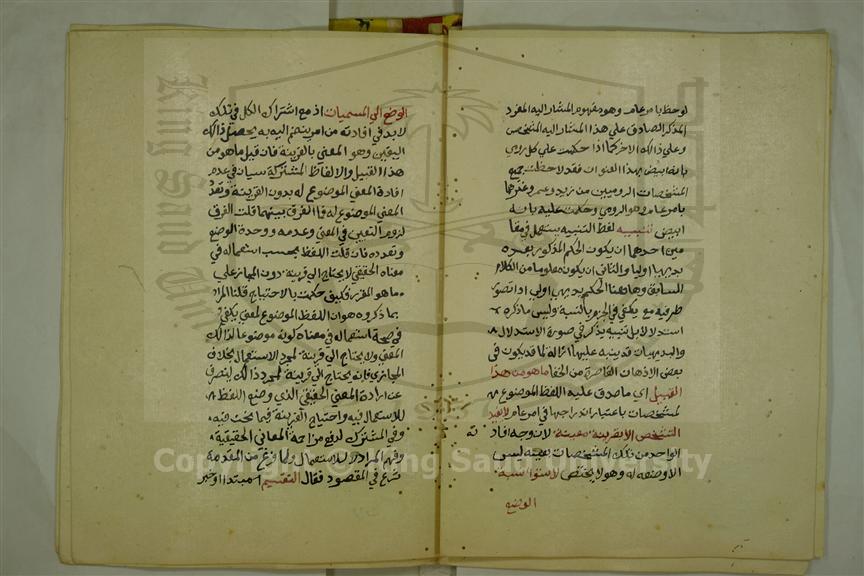 لوحظ بامر عام وهو مفهوم المشار اليه المفرد
المذكر الصادق علي هذا المشار اليه المشخص
وعلي ذالك الاخر كما اذا حكمت علي كل رومي
بانه ابيض بهذا العنوان فقد لاحظت جميع
المشخصات الروميين من زيد وعمر وغيرهما
بامر عام وهو الرومي وحكمت عليه بانه
ابيض تنبيه لفظ التنبيه يستعمل في مقا
مين احدهما ان يكون الحكم المذكور بعده
بديهيا اوليا والثاني ان يكون معلوما من الكلام
السابق وهاهنا الحكم بديهي اولي اذ تصور
طرفيه مع يكفي في الجزم بالنسبة وليس ما ذكره
استدلالا بل تنبيه يذكر في صورة الاستدلال
والبديهيات قد ينبه عليها ازالة لما قد يكون في
بعض الاذهان القاصرة من الخفا ما هو من هذا
القبيل اي ما صدق عليه اللفظ الموضوع
لمشخصات باعتبار اندراجها في امر عام لا يفيد
التشخص الا بقرينة معينة لان توجه افادته
الواحد من تلك المشخصات بعينه ليس
الا وضعه له وهو لا يختص لاستوا نسبة
الوضع
الوضع الي المسميات اذ مع اشتراك الكل في تلك
لا بد في افادته من امر ينضم اليه به يحصل ذالك
اليقين وهو المعني بالقرينة فان قيل ما هو من
هذا القبيل والالفاظ المشتركة سيان في عدم
افادة المعني الموضوع له بدون القرينة وتعدد
المعني الموضوع له فما الفرق بينهما قلت الفرق
لزوم التعين في المعني وعدمه ووحدة الوضع
وتعدده فان قلت اللفظ بحسب استعماله في
معناه الحقيقي لا يحتاج الي قرينة دون المجاز علي
ما هو المقرر فكيف حكمت بالاحتياج قلنا المراد
بما ذكروه هو ان اللفظ الموضوع لمعني يكفي
في صحة استعماله في معناه كونه موضوعا لذالك
المعني ولا يحتاج الي قرينة لمجرد الاستعمال بخلاف
المجازي فانه يحتاج الي قرينة لمجرد ذالك لينصرف
عن ارادة المعني الحقيقي الذي وضع اللفظ
للاستعمال فيه واحتياج القرينة فيما نحن فيه
وفي المشترك لدفع مزاحمة المعاني الحقيقية
وفهم المراد لا للاستعمال ولما فرغ من المقدمة
شرع في المقصود فقال التقسيم اسمبتدا او خبر
Copyright © King Saud University